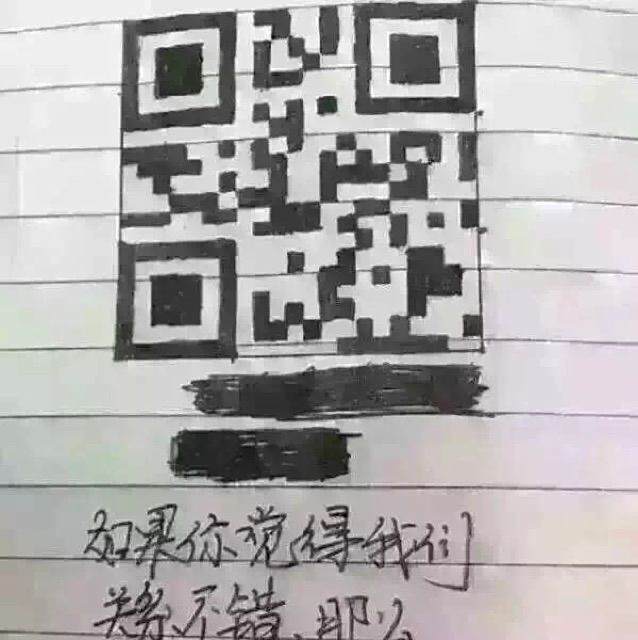 如果你觉得我们
关系不错、那么